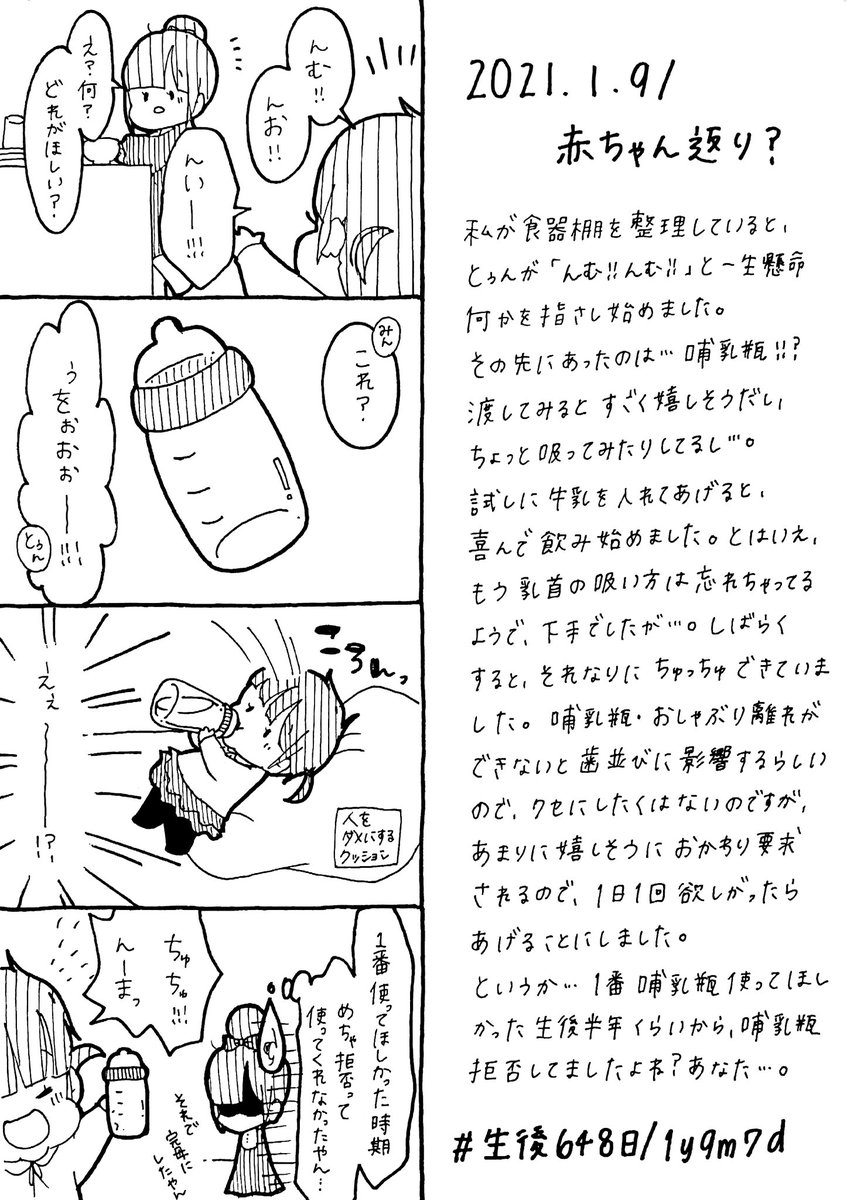 んむ!!
んお!!
え?何?
どれがほしい?
んいー!!!
みん
これ?
うをぉおぉー!!!
とぅん
ころんっ
人を
ダメにする
クッション
えぇ〜!?
1番使ってほしかった時期
めちゃ拒否って
使ってくれなかったやん…
それで
完母に
したやん
ちゅちゅ!!!
んーまっ
2021.1.9/
赤ちゃん返り?
私が食器棚を整理していると、
とぅんが「んむ!!んむ!!」と一生懸命
何かを指さし始めました。
その先にあったのは…哺乳瓶!!?
渡してみるとすごく嬉しそうだし、
ちょっと吸ってみたりしてるし…。
試しに牛乳を入れてあげると、
喜んで飲み始めました。とはいえ、
もう乳首の吸い方は忘れちゃってる
ようで、下手でしたが…。しばらく
すると、それなりにちゅっちゅできていま
した。哺乳瓶・おしゃぶり離れが
できないと歯並びに影響するらしい
ので、クセにしたくはないのですが、
あまりに嬉しそうにおかわり要求
されるので、1日1回欲しがったら
あげることにしました。
というか…1番哺乳瓶使ってほし
かった生後半年くらいから、哺乳瓶
拒否してましたよね?あなた…。
#生後648日/1y9m7d